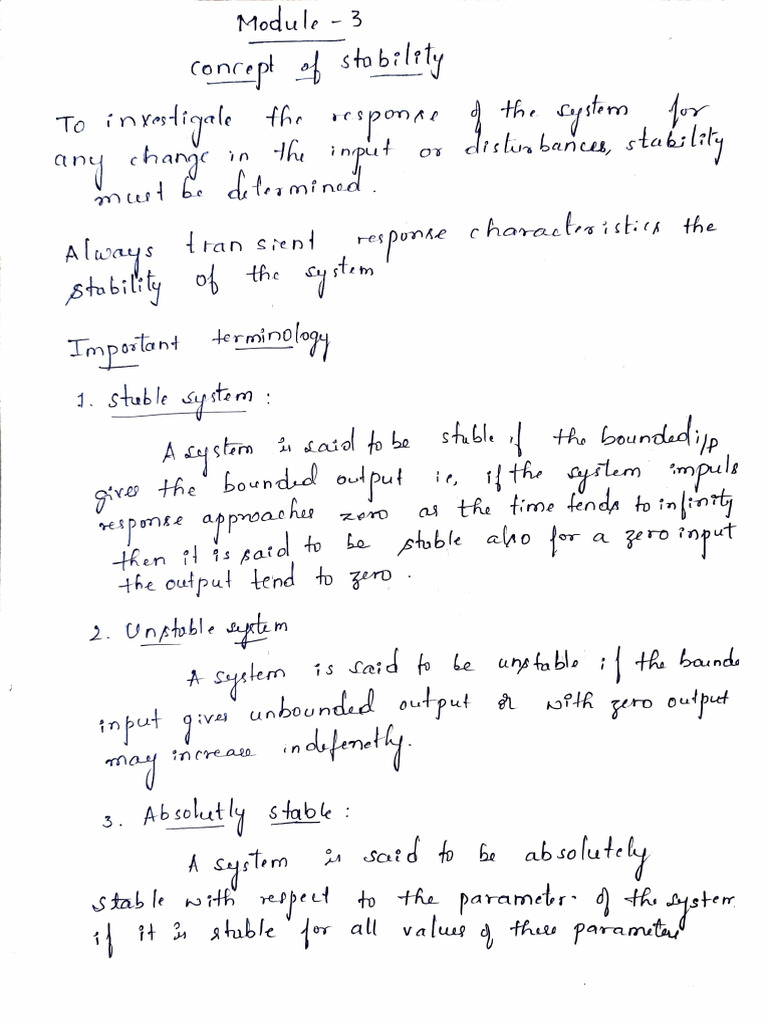 Module - 3
Concept of stability
To investigate the response of the system for
any change in the input or disturbances, stability
must be determined.
Always transient response characteristics the
stability of the system
Important terminology
1. Stable system :
A system is said to be stable if the bounded i/p
gives the bounded output ie, if the system impuls
response approaches zero as the time tends to infinity
then it is said to be stable also for a zero input
the output tend to zero.
2. Unstable system
A system is said to be unstable if the bounde
input gives unbounded output or with zero output
may increase indefenetly.
3. Absolutly stable :
A system is said to be absolutely
stable with respect to the parameter of the system
if it is stable for all values of these parameters